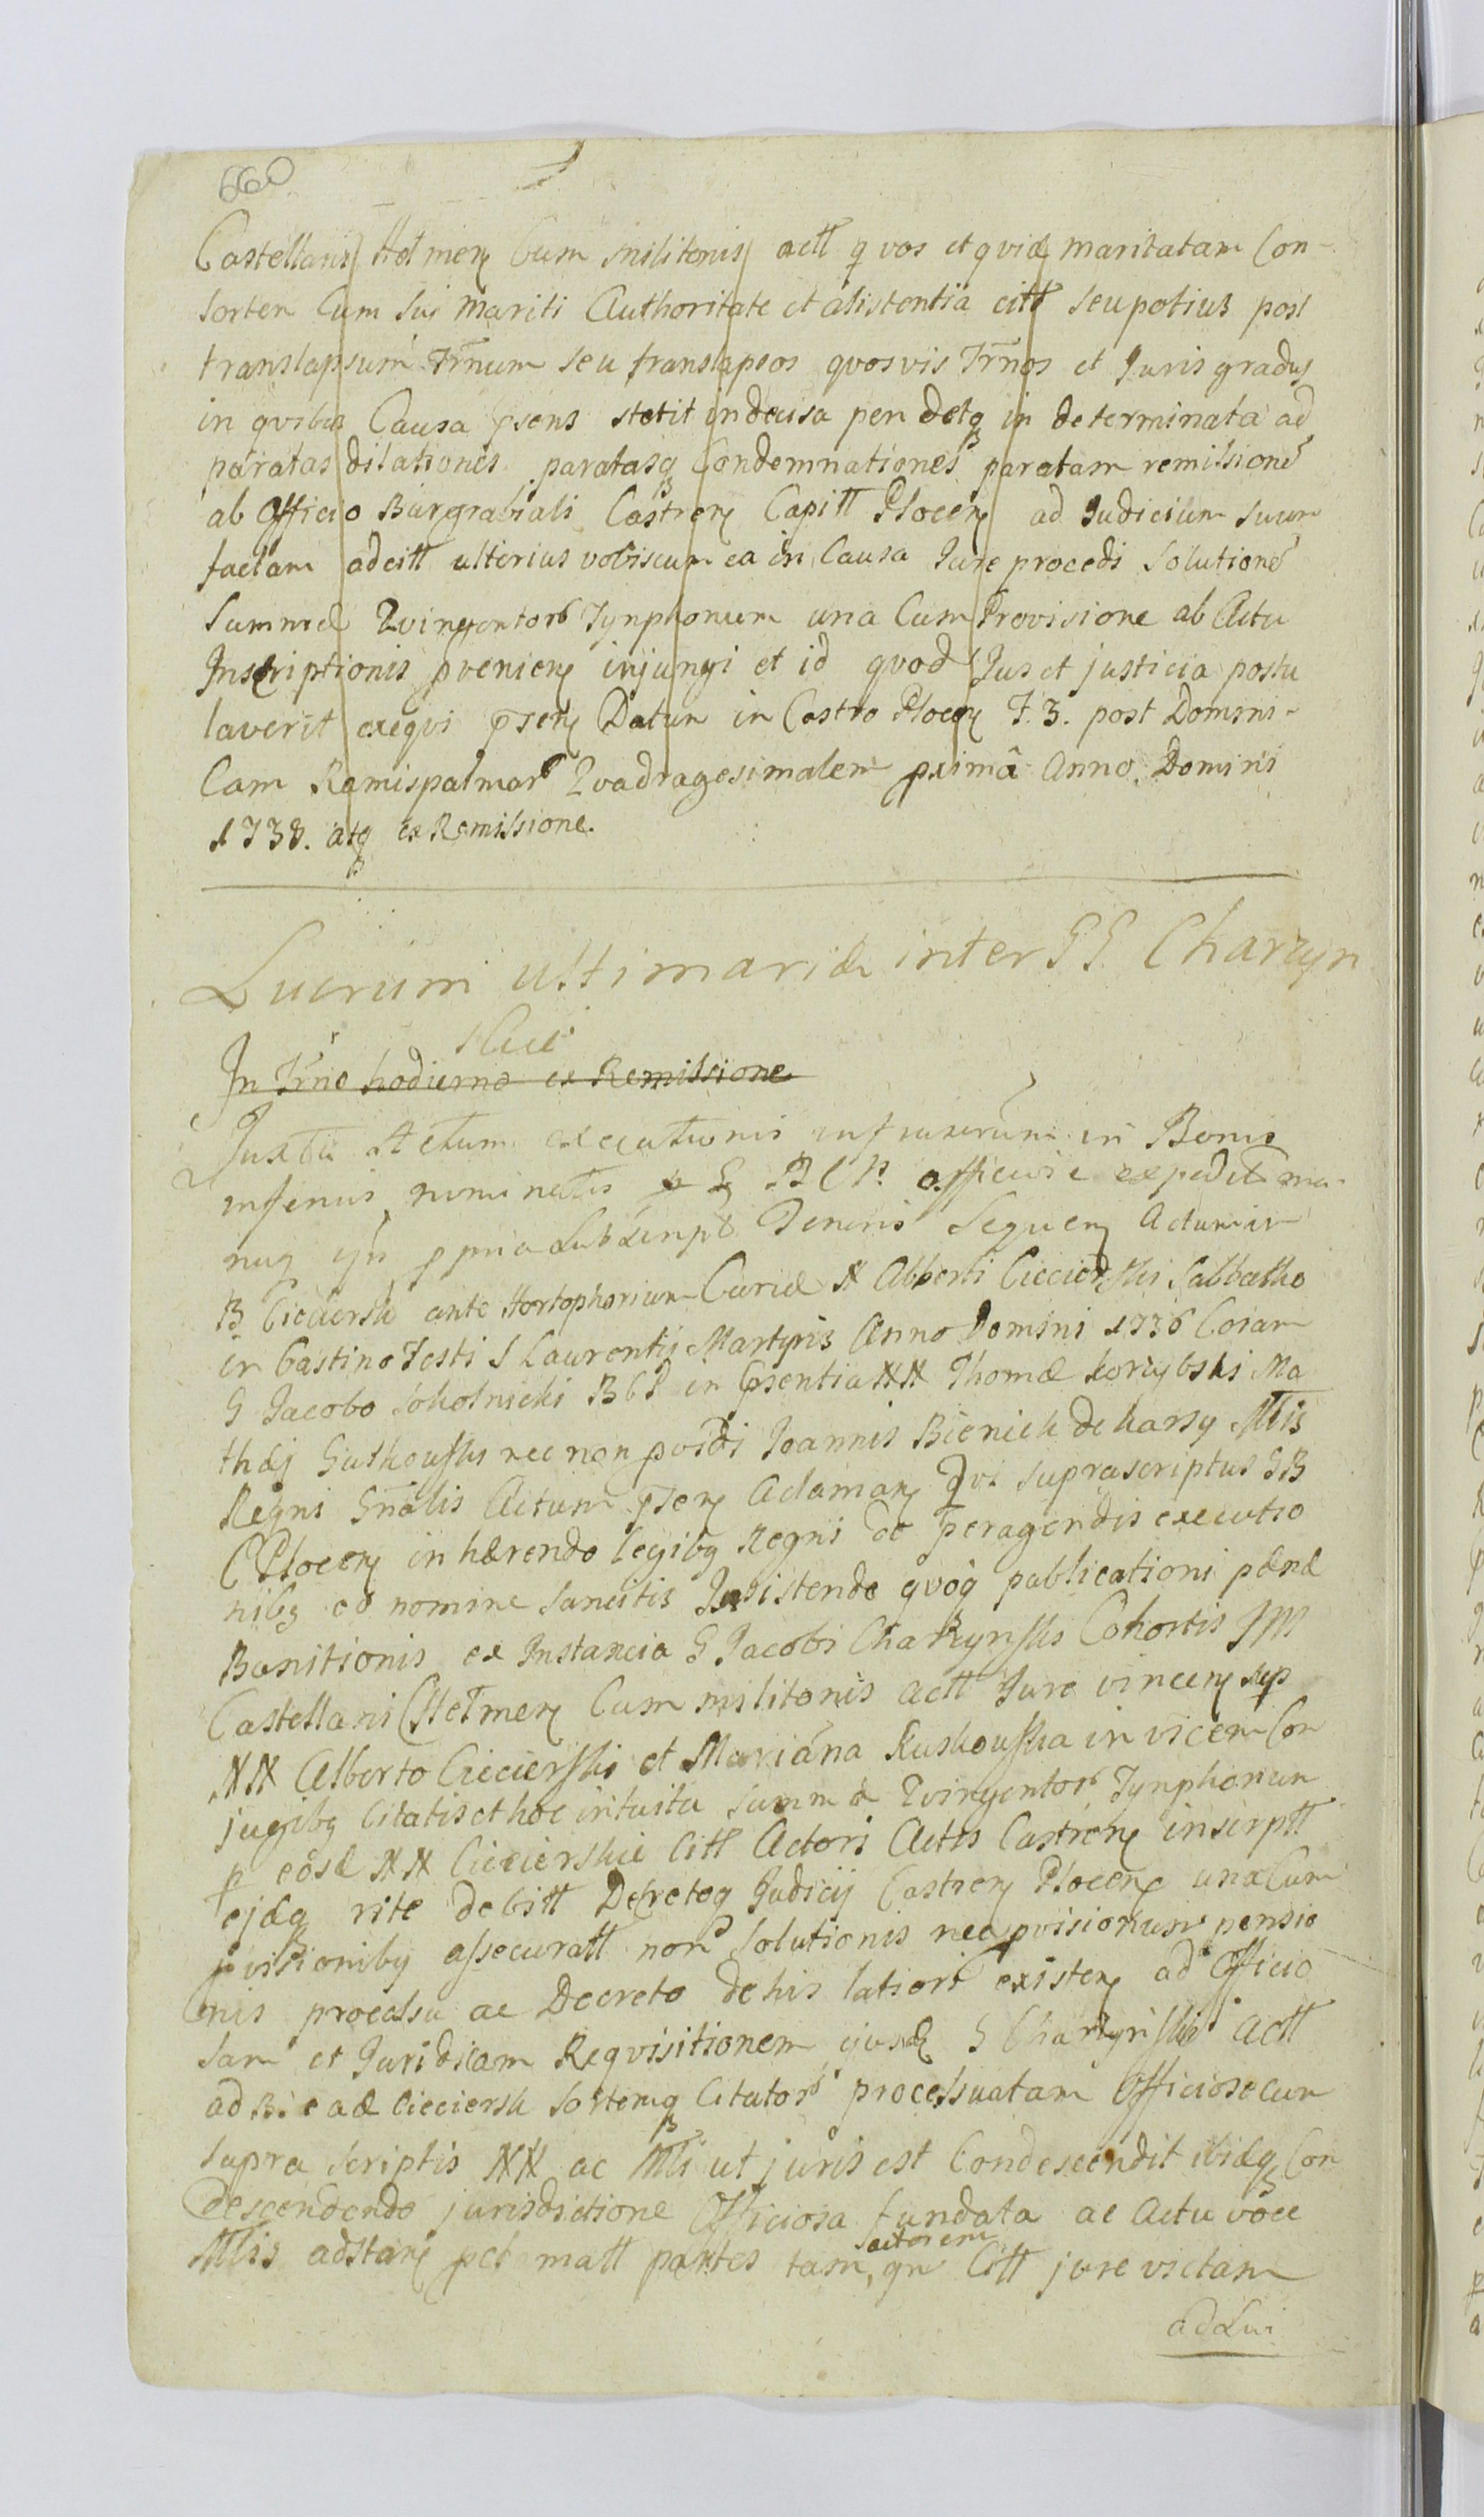 660
Castellani Hełmen Cum militonis actt q vos et qvid maritatam Con-
sortem Cum sui mariti Authoritate et assistentia citt seu potius post
translapsum Trnum seu translapsos qvosvis Trnos et Juris gradus
in qvibus Causa psens stetit indecisa pendetq in determinata ad
paratas dilationes paratasq Condemnationes paratam remissione
ab Officio Burgrabiali Castren Capitt Plocen ad Judicium suum
factam adcitt ulterius vobiscum ea in Causa Jure procedi solutione
Summæ Qvingentor Tynphonum una Cum Provisione ab Actu
Inscriptionis pvenien injungi et id qvod Jus et justicia postu
laverit exeqvi psen Datum in Castro Plocen F. 3. post Domini-
Cam Ramispalmar Qvadragesimalem primâ Anno Domini
1738. atq ex Remissione.
Lucrum ultimariæ inter GG Charzyn
skie
In Trno hodierno ex Remissione
Juxta Actum executionis infrascrum in Bonis
inferius nominatis p G B C P. officiose expedit ma-
nuq ejus ppria subscript Tenoris Sequen Actum in
B Cieciersk ante Hortophorium Curiæ N Alberti Ciecierski Sabbatho
in Castino Festi S Laurentij Martyris Anno Domini 1736 Coram
G Jacobo Sokolnicki B C P in Psentia NN Thomæ korzybski Ma
thæj Gutkowski nec non pvidi Joannis Bieniek de karsy Mlis
Regni Gnalis Actum psen Adaman Qvi suprascriptus GB
C Plocen inhærendo legibq Regni de peragendis executio
nibq eo nomine sancitis Insistendo qvoq publicationi pænæ
Banitionis ex Instancia G Jacobi Charzynski Cohortis JM
Castellani Chełmen Cum militonis actt Jure vincen sup
NN Alberto Ciecierski et Mariana Ruskowska invicem Con
jugibq Citatis et hoc intuitu summæ Qvingentor Tynphonum
p eosd NN Ciecierskie Citt Actori Actis Castren inscriptt
ejdq rite debitt Decretoq Judicij Castren Plocen una Cum
pvisionibq assecuratt non solutionis nec pvisionum pensio
nis processu ac Decreto de his latiori existen ad Officio
sam et Juridicam Reqvisitionem ejusd G Charzynski Actt
ad B. ead Cieciersk sortemq Citator processuatam Officiose cum
supra scriptis NN ac Mli ut juris est Condescendit ibidq Con
descendendo jurisdictione Officiosa fundata ac Actu voce
actorem
Mlis adstan pct matt partes tam, qm Citt jure victam
ad Lui